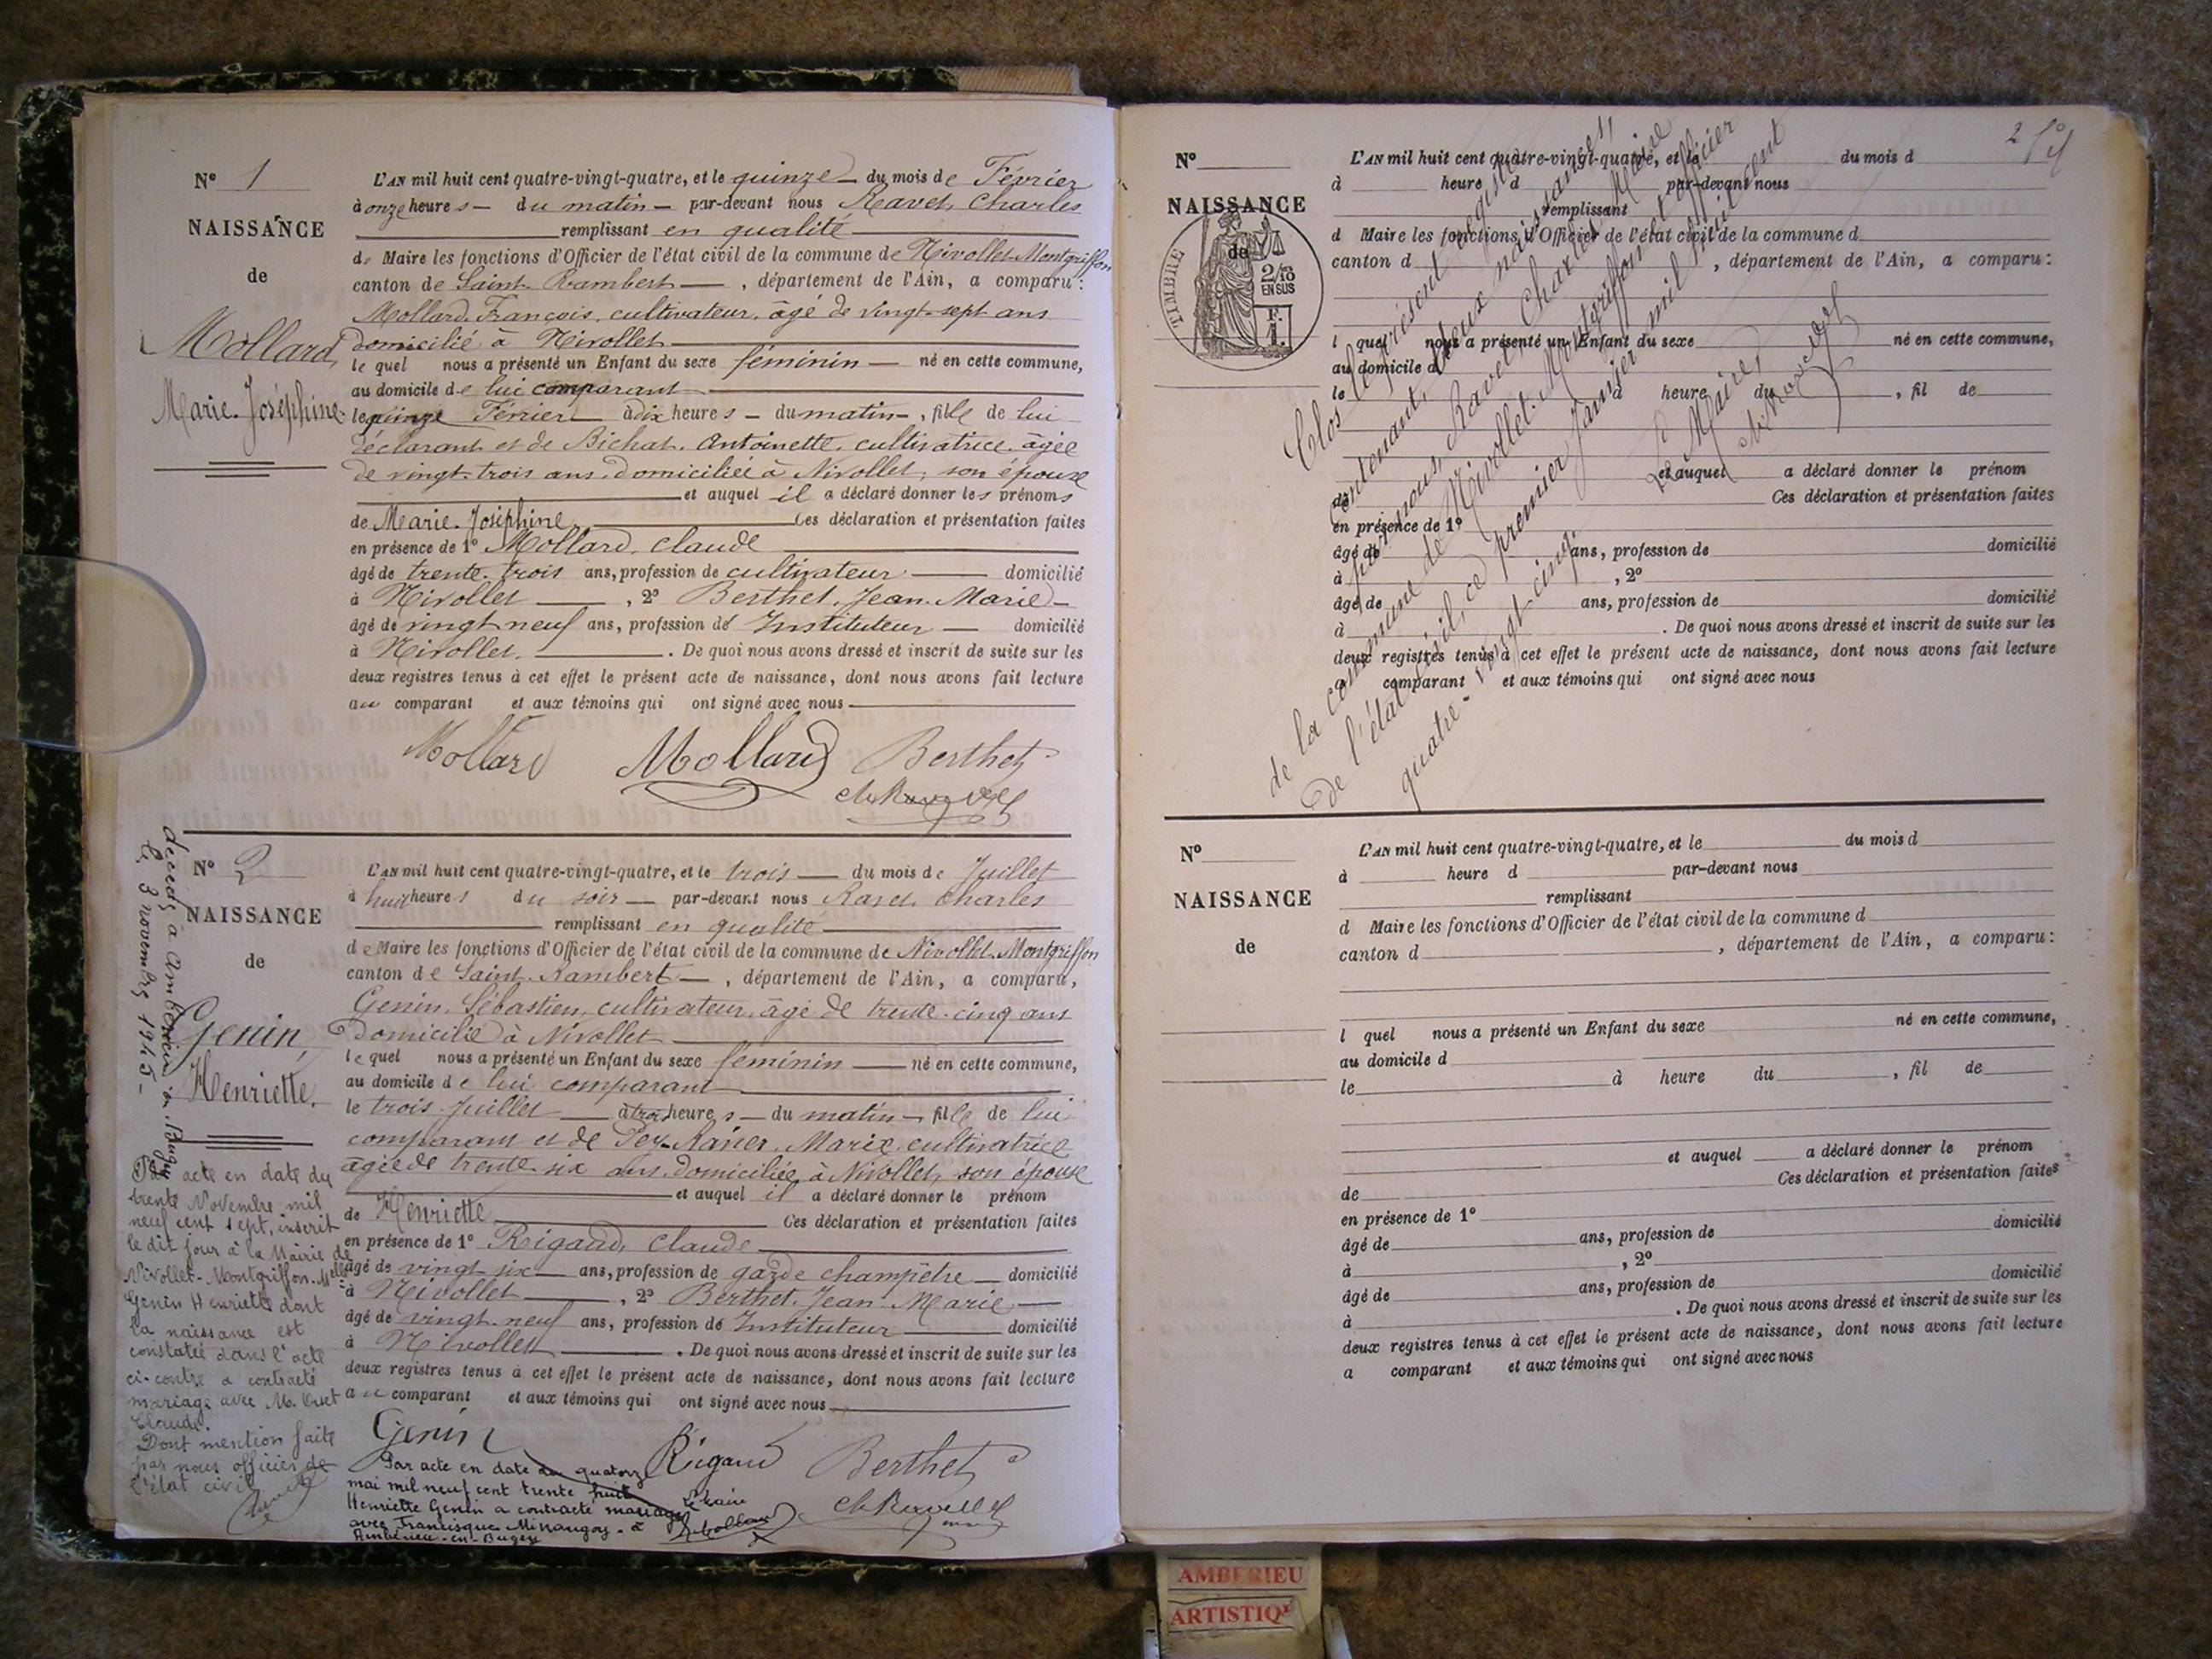 N° 1
NAISSANCE
de
Mollard,
Marie-Joséphine.
L'AN mil huit cent quatre-vingt-quatre, et le quinze du mois de Février
à onze heures du matin par-devant nous Ravet, Charles
remplissant en qualité
de Maire les fonctions d'Officier de l'état civil de la commune de Nivollet-Montgriffon
canton de Saint-Rambert, département de l'Ain, a comparu :
Mollard, François, cultivateur, âgé de vingt-sept ans
domicilié à Nivollet
le quel nous a présenté un Enfant du sexe féminin né en cette commune,
au domicile de lui comparant
le quinze Février à dix heures du matin, fille de lui
déclarant et de Bichat, Antoinette, cultivatrice, âgée
de vingt-trois ans, domiciliée à Nivollet, son épouse
et auquel il a déclaré donner les prénoms
de Marie-Joséphine. Ces déclaration et présentation faites
en présence de 1° Mollard, Claude
âgé de trente-trois ans, profession de cultivateur domicilié
à Nivollet, 2° Berthet, Jean-Marie
âgé de vingt neuf ans, profession de Instituteur domicilié
à Nivollet. De quoi nous avons dressé et inscrit de suite sur les
deux registres tenus à cet effet le présent acte de naissance, dont nous avons fait lecture
au comparant et aux témoins qui ont signé avec nous
Mollard Mollard Berthet
N° 2
NAISSANCE
de
Genin,
Henriette.
décédée à Ambérieu-en-Bugey
le 3 novembre 1945-
L'AN mil huit cent quatre-vingt-quatre, et le trois du mois de Juillet
à huit heures du soir par-devant nous Ravet, Charles
remplissant en qualité
de Maire les fonctions d'Officier de l'état civil de la commune de Nivollet-Montgriffon
canton de Saint-Rambert, département de l'Ain, a comparu,
Genin, Sébastien, cultivateur, âgé de trente-cinq ans
domicilié à Nivollet
le quel nous a présenté un Enfant du sexe féminin né en cette commune,
au domicile de lui comparant
le trois Juillet à trois heures du matin, fille de lui
comparant et de Marie, cultivatrice
âgée de trente-six ans, domiciliée à Nivollet, son épouse
et auquel il a déclaré donner le prénom
de Henriette Ces déclaration et présentation faites
en présence de 1° Rigaud, Claude
âgé de vingt six ans, profession de garde champêtre domicilié
à Nivollet, 2° Berthet, Jean-Marie
âgé de vingt-neuf ans, profession de Instituteur domicilié
à Nivollet. De quoi nous avons dressé et inscrit de suite sur les
deux registres tenus à cet effet le présent acte de naissance, dont nous avons fait lecture
au comparant et aux témoins qui ont signé avec nous
Genin Rigaud Berthet
Par acte en date du
trente Novembre mil
neuf cent sept, inscrit
le dit jour à la Mairie de
Nivollet-Montgriffon, Melle
Genin Henriette dont
la naissance est
constatée dans l'acte
ci-contre a contracté
mariage avec M. Orset
Claude.
Dont mention faite
par nous officier de
l'état civil
Par acte en date du quatorze
mai mil neuf cent trente huit
Henriette Genin a contracté mariage
avec Francisque Minangoy à
Ambérieu-en-Bugey
Le Maire
Mollard
N°
NAISSANCE
de
TIMBRE
2/10
EN SUS
F.
1.
L'AN mil huit cent quatre-vingt-quatre, et le du mois d
à heure d par-devant nous
remplissant
d Maire les fonctions d'Officier de l'état civil de la commune d
canton d , département de l'Ain, a comparu :
l quel nous a présenté un Enfant du sexe né en cette commune,
au domicile d
le à heure du , fil de
et auquel a déclaré donner le prénom
de Ces déclaration et présentation faites
en présence de 1°
âgé de ans, profession de domicilié
à , 2°
âgé de ans, profession de domicilié
à . De quoi nous avons dressé et inscrit de suite sur les
deux registres tenus à cet effet le présent acte de naissance, dont nous avons fait lecture
a comparant et aux témoins qui ont signé avec nous
Clos le présent registre,
contenant deux naissances,
par nous, Ravet, Charles, Maire
de la commune de Nivollet-Montgriffon et officier
de l'état civil, ce premier Janvier mil huit cent
quatre-vingt-cinq.
Le Maire,
N°
NAISSANCE
de
L'AN mil huit cent quatre-vingt-quatre, et le du mois d
à heure d par-devant nous
remplissant
d Maire les fonctions d'Officier de l'état civil de la commune d
canton d , département de l'Ain, a comparu :
l quel nous a présenté un Enfant du sexe né en cette commune,
au domicile d
le à heure du , fil de
et auquel a déclaré donner le prénom
de Ces déclaration et présentation faites
en présence de 1°
âgé de ans, profession de domicilié
à , 2°
âgé de ans, profession de domicilié
à . De quoi nous avons dressé et inscrit de suite sur les
deux registres tenus à cet effet le présent acte de naissance, dont nous avons fait lecture
a comparant et aux témoins qui ont signé avec nous
AMBERIEU
ARTISTIQ